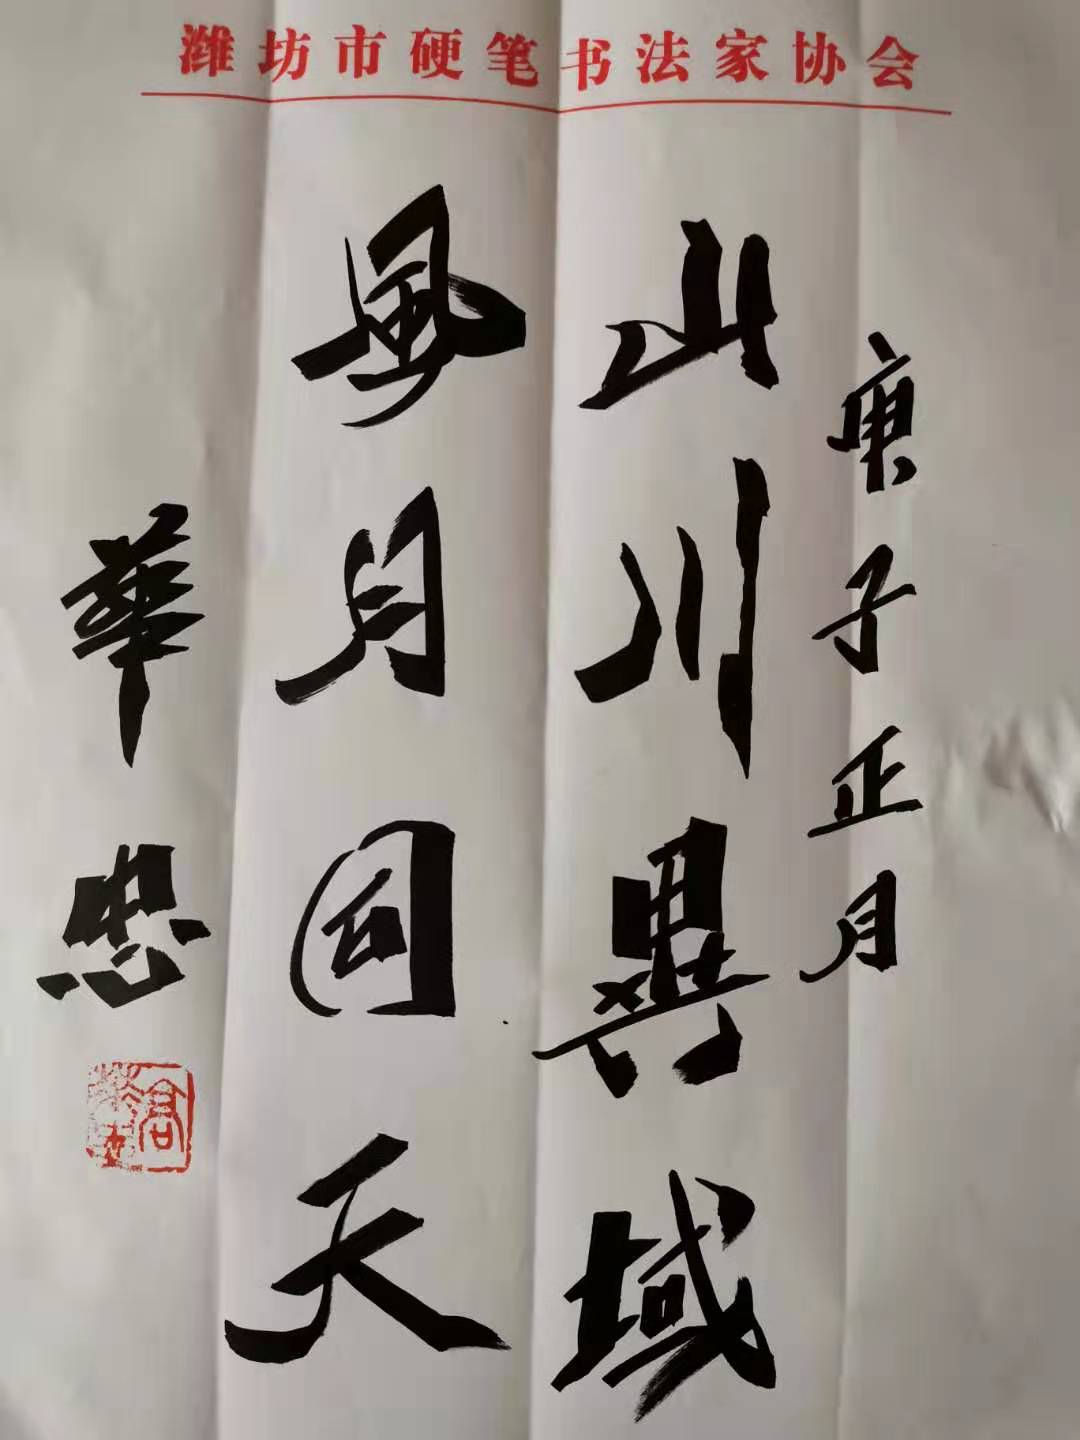 潍坊市硬笔书法家协会
庚子正月
山川異域
風月同天
華忠